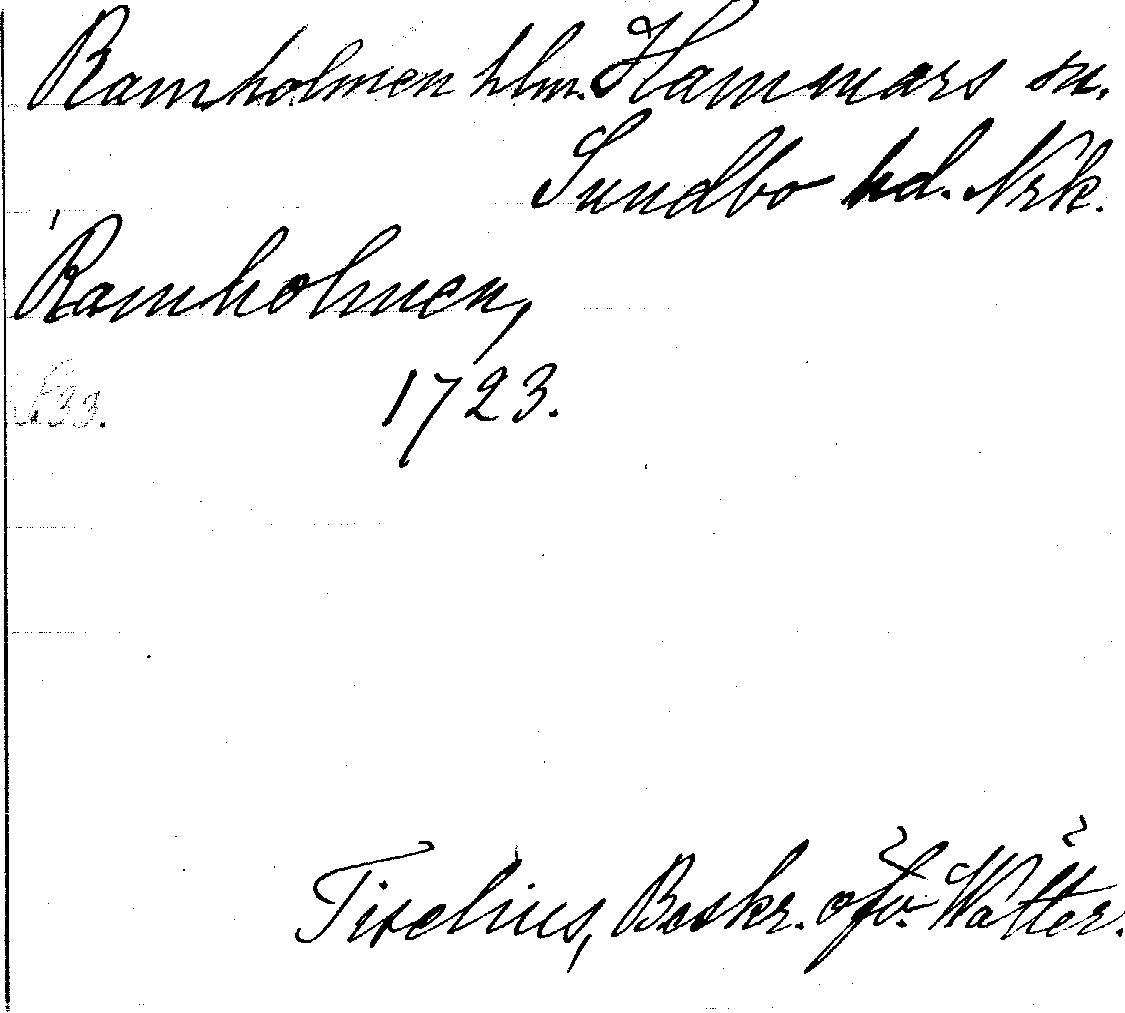 Ramholmen hlm. Hammars sn.
Sundbo hd. Nrk.
Ramholmen,
S. 33. 1723.
Tiselius, Beskr. öfv. Wätter.